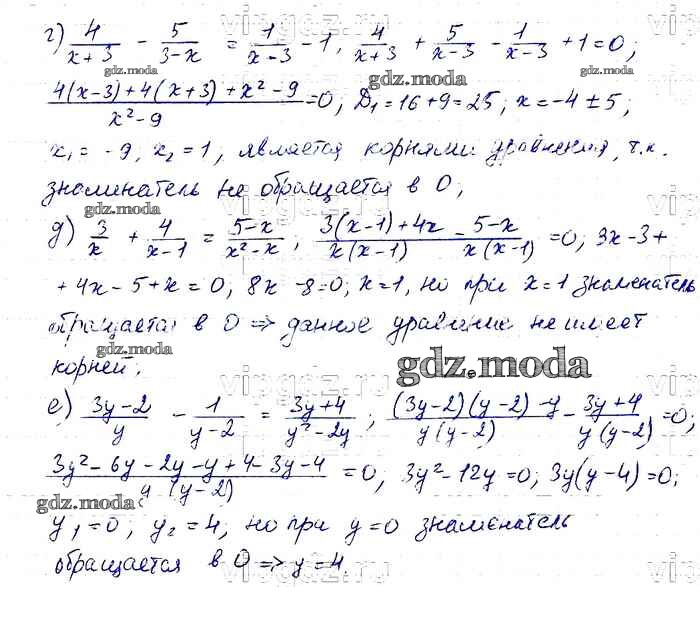 г) 4/(x+3) - 5/(3-x) = 1/(x-3) - 1, 4/(x+3) + 5/(x-3) - 1/(x-3) + 1 = 0;
(4(x-3)+4(x+3)+x²-9)/(x²-9) = 0; D₁=16+9=25; x=-4±5;
x₁=-9, x₂=1, является корнями уравнения, т.к.
знаминатель не обращается в 0;
д) 3/x + 4/(x-1) = (5-x)/(x²-x); (3(x-1)+4x)/(x(x-1)) - (5-x)/(x(x-1)) = 0; 3x-3+
+4x-5+x=0; 8x-8=0; x=1, но при x=1 знаменатель
обращается в 0 ⇒ данное уравнение не имеет
корней.
е) (3y-2)/y - 1/(y-2) = (3y+4)/(y²-2y); ((3y-2)(y-2)-y)/(y(y-2)) - (3y+4)/(y(y-2)) = 0;
(3y²-6y-2y-y+4-3y-4)/(y(y-2)) = 0; 3y²-12y=0; 3y(y-4)=0;
y₁=0; y₂=4, но при y=0 знаменатель
обращается в 0 ⇒ y=4.
gdz.moda
vipgdz.ru